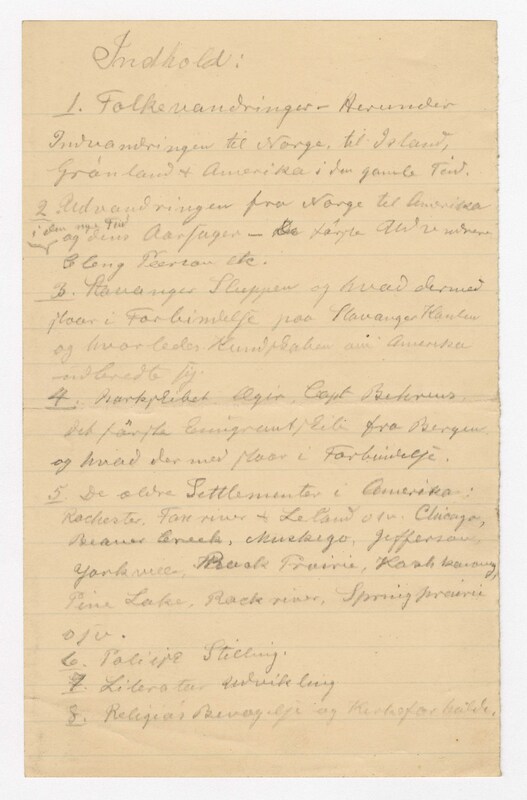 Indhold:
1. Folkevandringer – Herunder
Indvandringen til Norge, til Island,
Grønland & Amerika i den gamle Tid.
2 Udvandringen fra Norge til Amerika
i den nye Tid
og dens Aarsager – De første Udvandrere
Cleng Peerson etc.
3. Stavanger Sluppen og hvad dermed
staar i Forbindelse paa Stavanger Kanten
og hvorledes Kundskaben om Amerika
udbredte sig.
4. Barkskibet Ægir, Capt Behrens
det første Emigrantskib fra Bergen
og hvad der med staar i Forbindelse.
5. De ældre Settlementer i Amerika:
Rochester, Fox river & Leland osv. Chicago,
Beaver Creek, Muskego, Jefferson,
Yorkville, Rock Prairie, Koshkonong,
Pine Lake, Rock river, Spring prairie
osv.
6. Politisk Stilling.
7. Literatur Udvikling
8. Religiøs Bevægelse og Kirkeforholde.